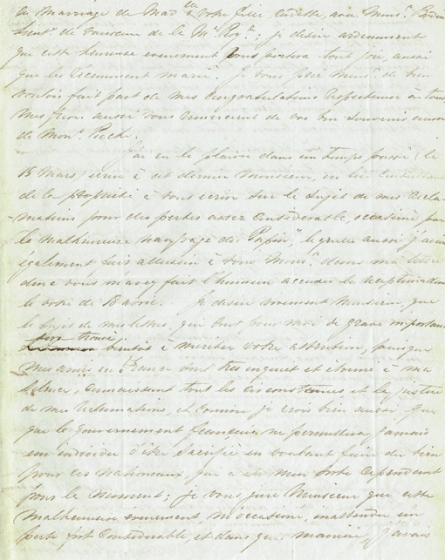 du mariage de Mad.lle votre fille cadette avec Mons.r
de Vaisseau de la M. Roy.le: je désire ardemment
que cet heureux evenement vous portera tout joie, aussi
que les récemment marié. Je vous prie Mons.r de bien
vouloir faire part de mes congratulations respectueuses à
Mes frères aussi vous remercient de vos bon souvenirs
de Mons.r
J'ai eu le plaisir dans un temps passé (le
18 Mars) écrire à cet dernier Monsieur, en lui
de la à vous écrire sur le sujet de mes
pour des pertes assez considérable, occasionné par
le malheureux naufrage du "Papin", lequel aussi j'ai
également fait allusion à vous Mons.r dans ma lettre
dont vous m'avez fait l'honneur accuser la reception
le votre du 18 avril. Je désire vivement Monsieur, que
le sujet de mes lettres, que sont pour moi de grave importance
trouve bientôt à mériter votre attention, puisque
mes amis en France sont très inquiet et étonné à ma
silence, connaissant tout les circonstances et la justice
de mes réclamations, et comme je crois bien aussi que
que le Gouvernement français ne permettra jamais
un individu d'être sacrifié en voulant faire du bien
pour ces nationaux, que a été mon sort cependant
pour le moment; je vous jure Monsieur que cette
malheureuse evenement, m'occasionne, inattendue un
perte fort considerable, et dans quel manière, j'avais